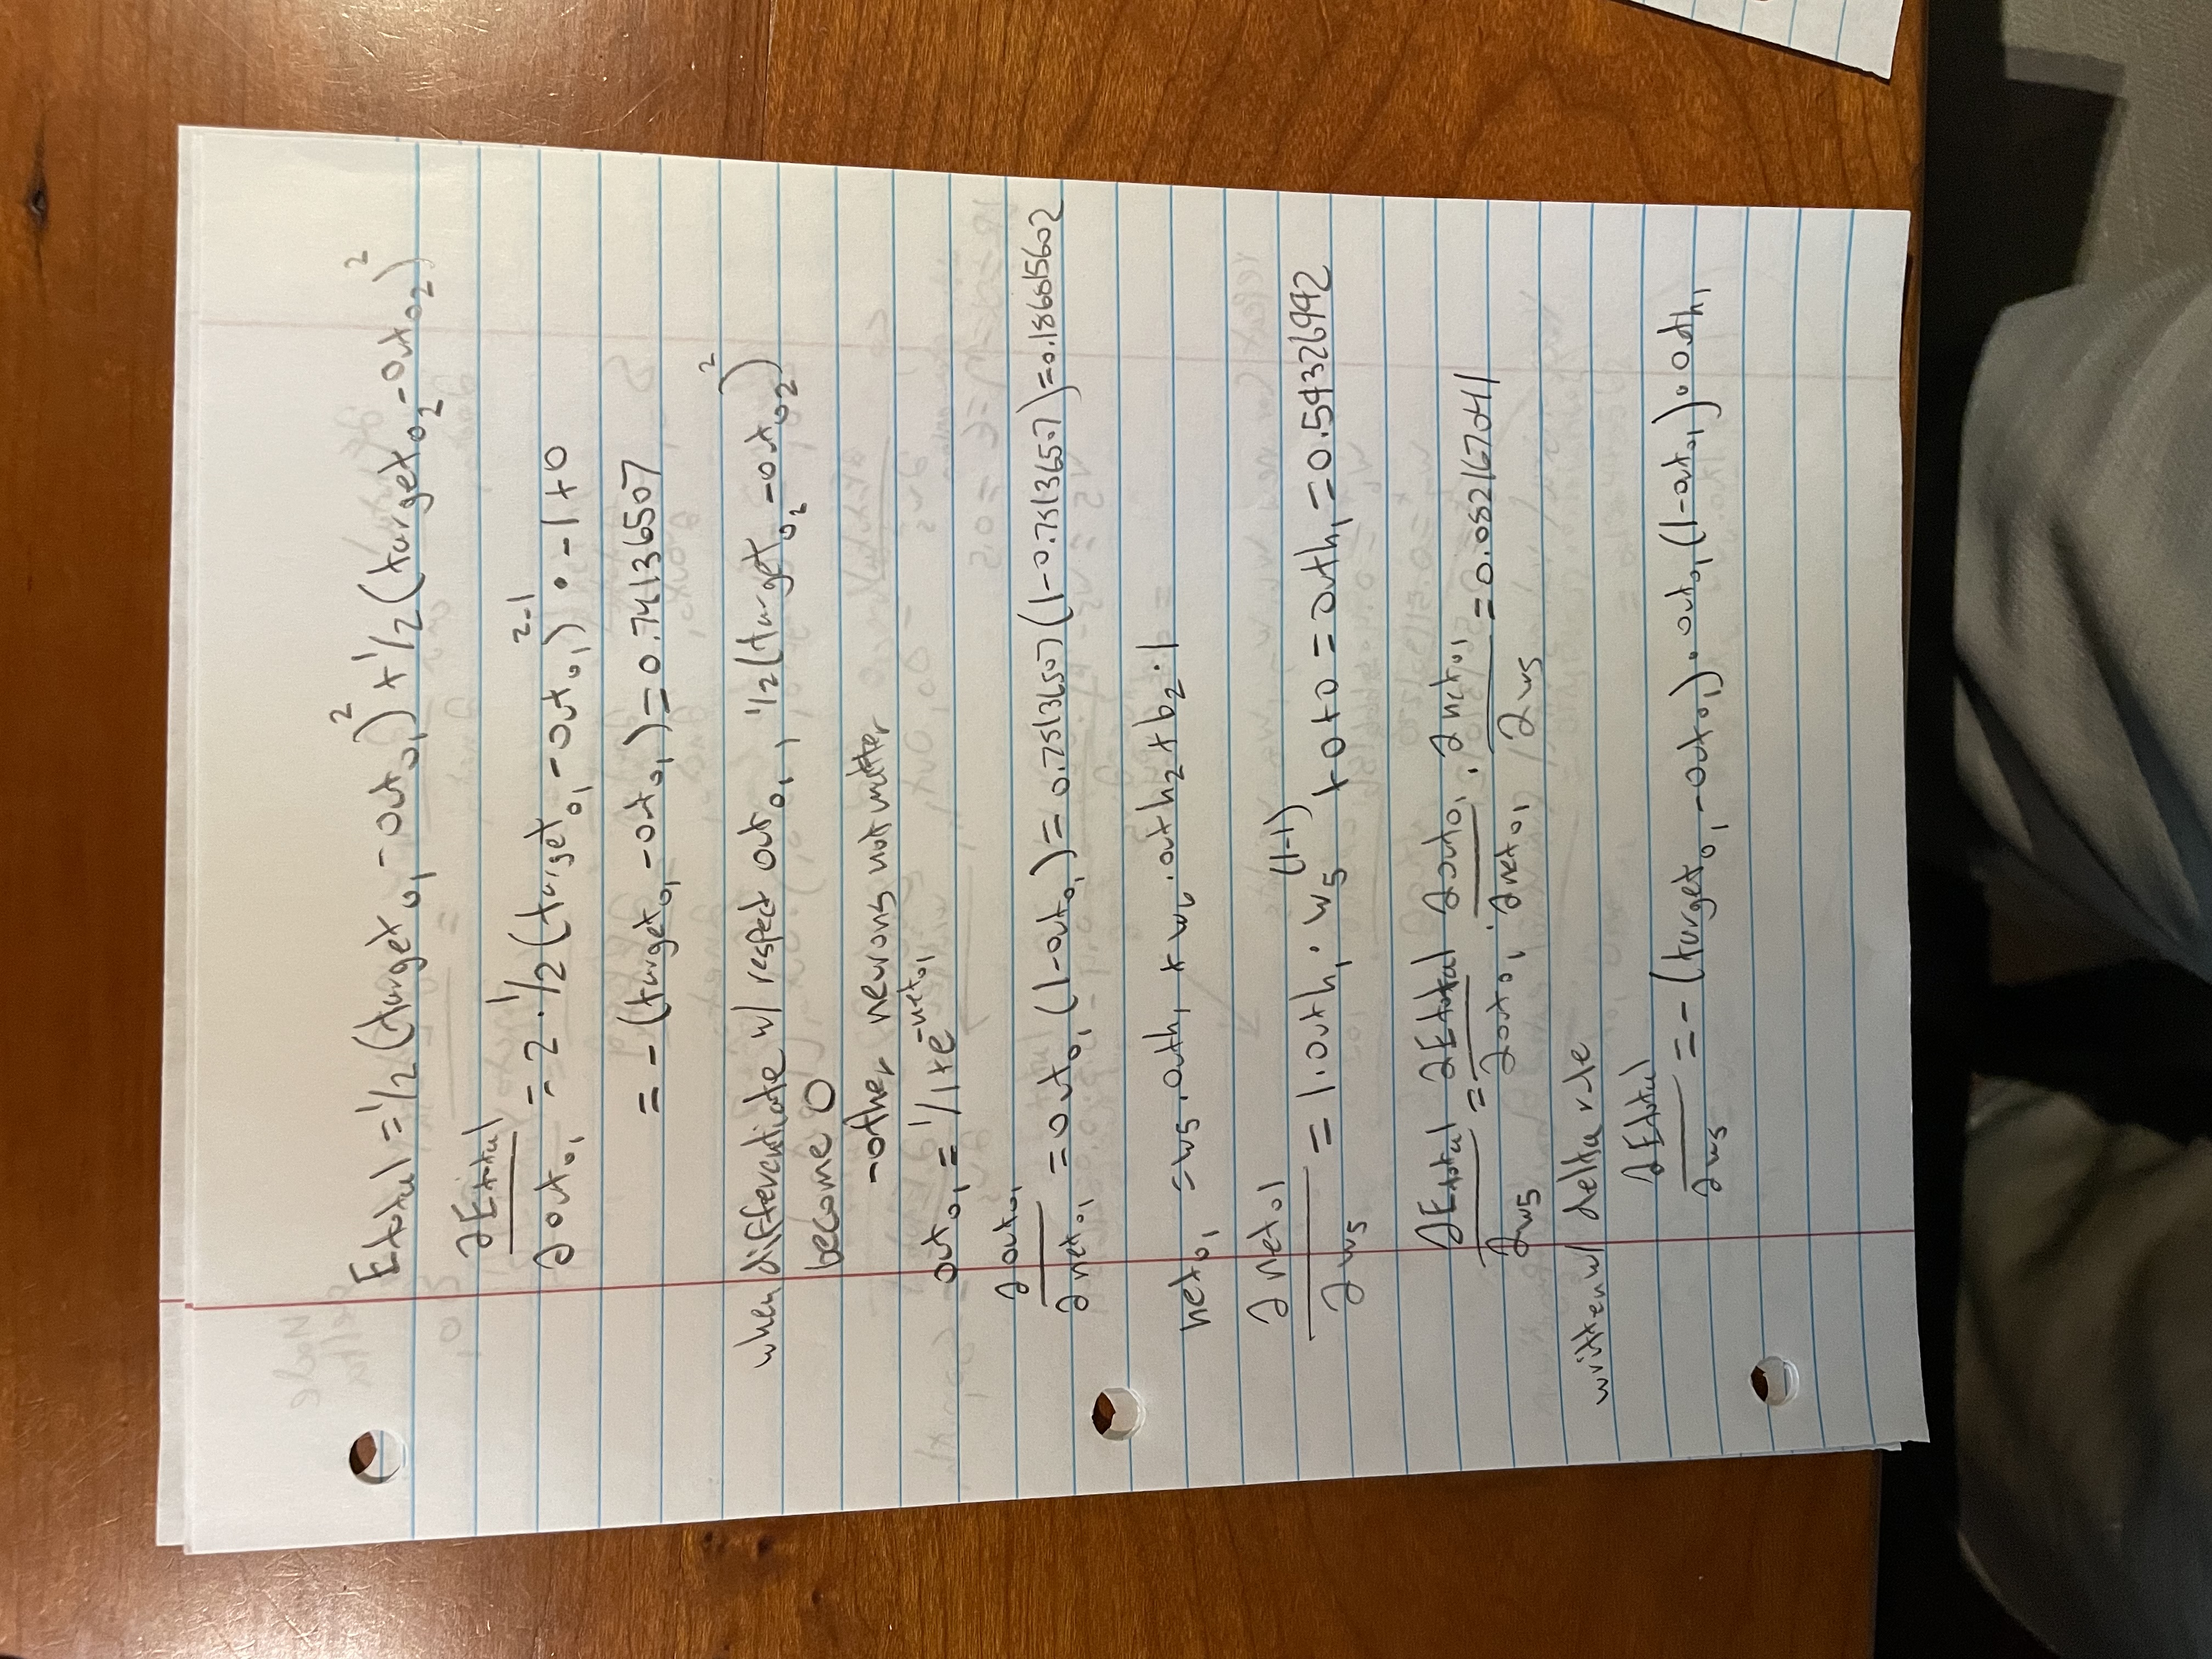 Etotal = 1/2 (target o1 - out o1)^2 + 1/2 (target o2 - out o2)^2
∂Etotal/∂out o1 = 2 · 1/2 (target o1 - out o1)^2-1 · -1 + 0
= - (target o1 - out o1) = 0.74136507
when differentiate w/ respect out o1, 1/2 (target o2 - out o2)^2
become 0
- other neurons not matter
out o1 = 1/1+e^-net o1
∂out o1/∂net o1 = out o1 (1 - out o1) = 0.75136507 (1 - 0.75136507) = 0.186815602
net o1 = w5 · out h1 + w6 · out h2 + b2 · 1
∂net o1/∂w5 = 1 · out h1 · w5^(1-1) + 0 + 0 = out h1 = 0.59326992
∂Etotal/∂w5 = ∂Etotal/∂out o1 · ∂out o1/∂net o1 · ∂net o1/∂w5 = 0.082167041
written w/ delta rule
∂Etotal/∂w5 = - (target o1 - out o1) · out o1 (1 - out o1) · out h1